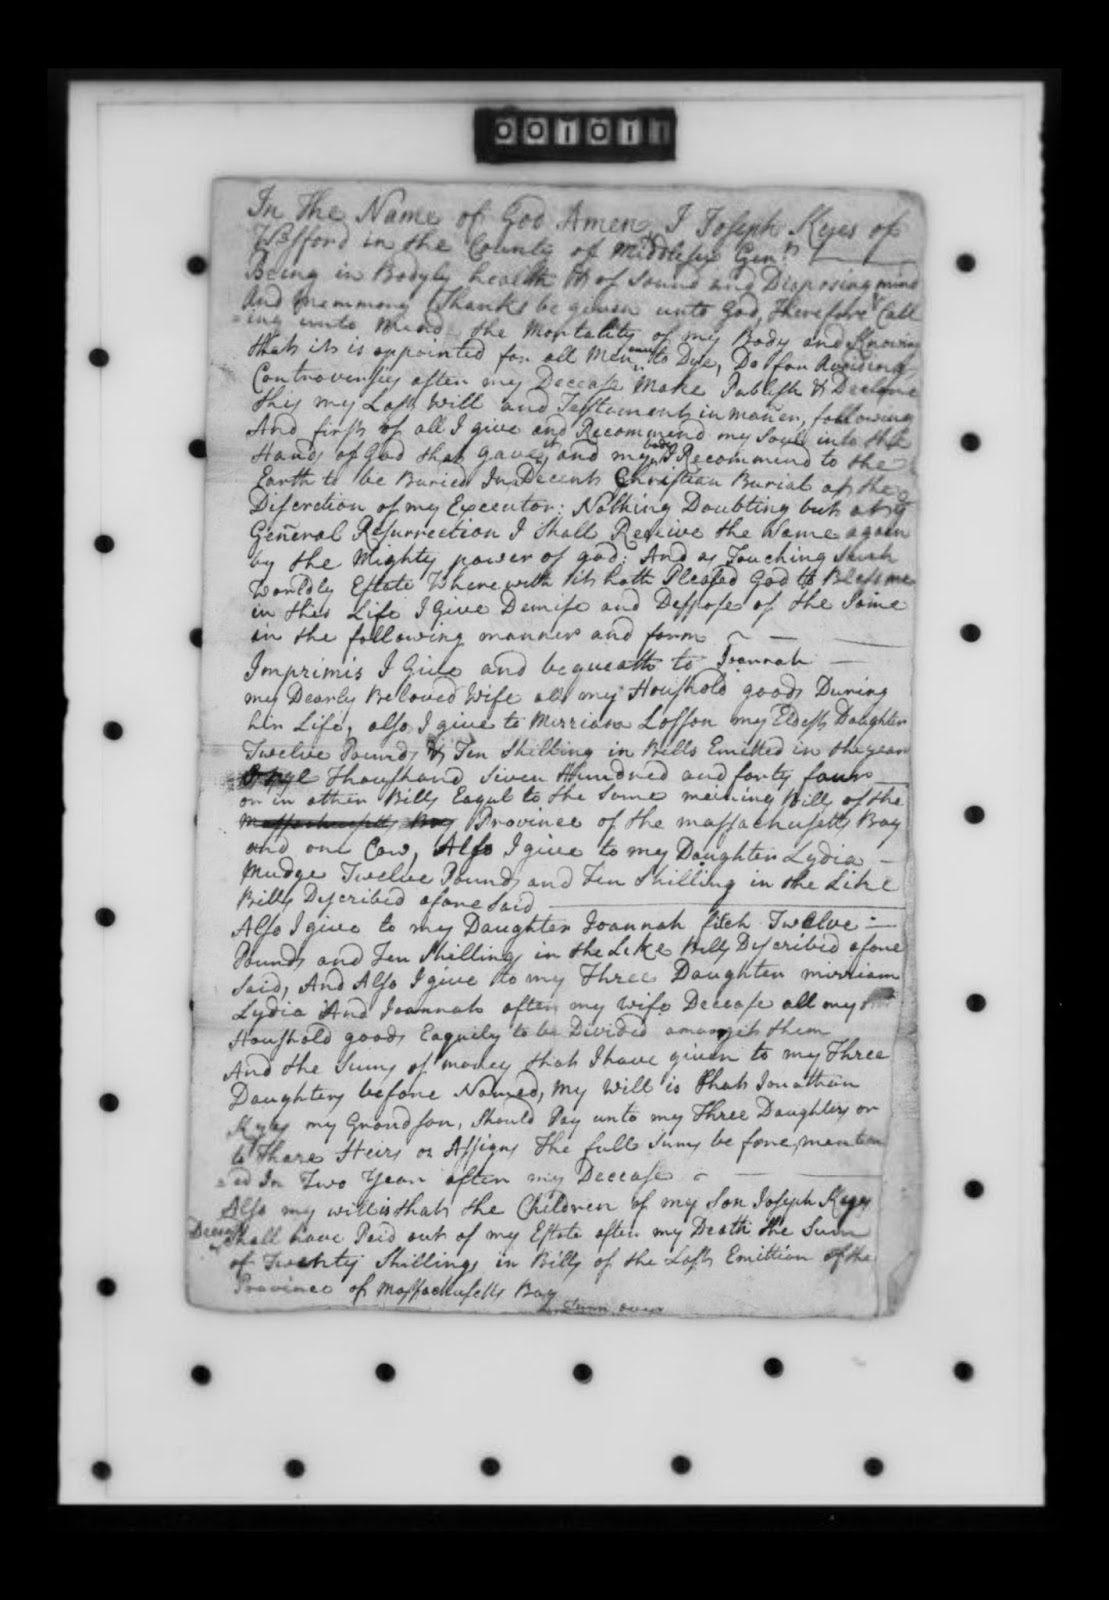 001011
In the Name of God Amen, I Joseph Keyes of
Wesford in the County of Middlesex Gen:tn
Being in Bodyly health & of Sound and Disposing mind
And memmory (Thanks be given unto God, Therefore Call
=ing unto Mind the Mortality of my Body and Knowing
that it is appointed for all Men once to Dye, Do for Avoiding
Controversies after my Decease Make Publish & Declare
this my Last Will and Testament in mañer, following
And first of all I give and Recommend my Soul into the
Hands of God that gave it and my body I Recommend to the
Earth to be Buried In a Decent Christian Burial at the
Discretion of my Executor: Nothing Doubting but at the
Geñeral Resurrection I Shall Receive the Same again
by the Mighty power of god: And as Touching Such
Worldly Estate Wherewith it hath Pleased God to Bless me
in this Life I Give Demise and Despose of the Same
in the following manner and form
Imprimis I Give and bequeath to Joannah
my Dearly Beloved Wife all my Houshold goods During
her Life, also I give to Mirriam Losson my Eldest Daughter
Twelve Pounds & Ten Shilling in Bills Emitted in the year
One Thoushand Seven Hundred and forty four
or in other Bills Eaqul to the Same meining Bills of the
Massachusetts Bay Province of the massachusetts Bay
and one Cow, Also I give to my Daughter Lydia
Mudge Twelve Pounds and Ten Shilling in the Like
Bills Discribed afore Said
Also I give to my Daughter Joannah fitch Twelve
Pounds and Ten Shilling in the Like Bills Discribed afore
Said, And Also I give to my Three Daughter mirriam
Lydia And Joannah after my wife Decease all my
Houshold goods Eaquely to be Divided amongst them
And the Sums of money that I have given to my Three
Daughters before Named, my Will is that Jonathan
Keyes my Grandson, Should Pay unto my Three Daughters or
to thare Heirs or Assigns the full Sums be fore, mention
=ed In Two Year after my Decease
Also my will is that the Children of my Son Joseph Keyes
Deceas'd Shall have Paid out of my Estate after my Death the Sum
of Twenty Shillings in Bills of the Last Emittion of the
Province of Massachusetts Bay
Turn over